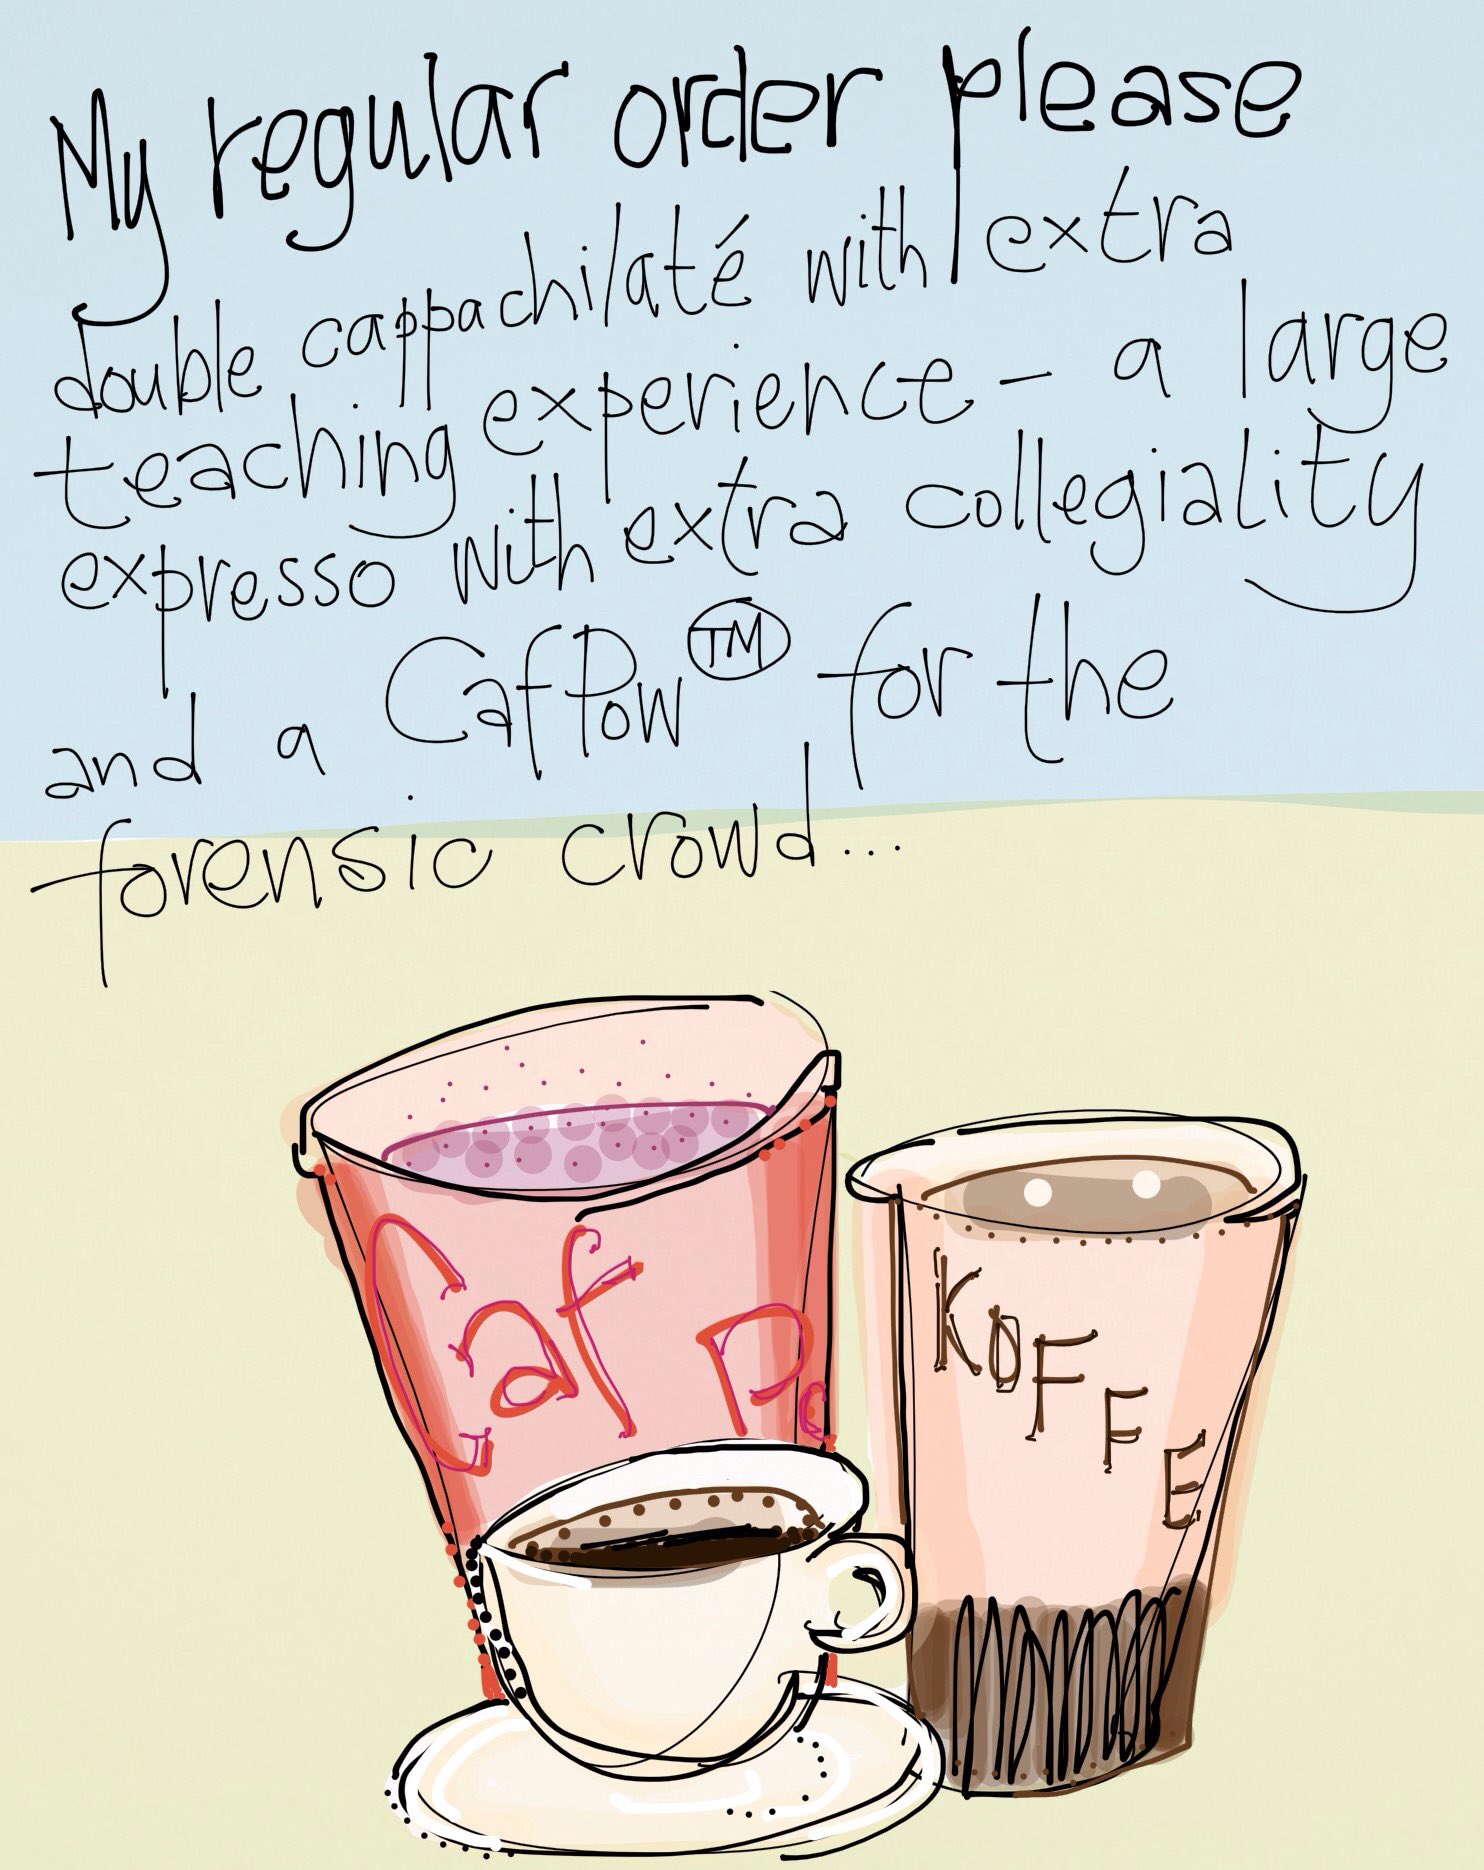 My regular order please
double cappachilaté with extra
teaching experience - a large
expresso with extra collegiality
and a CafPow TM for the
forensic crowd...
Caf Po
KOFFE